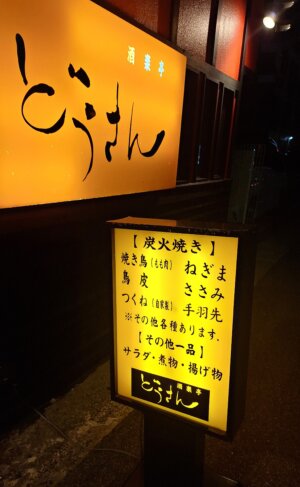 酒楽亭
どうさん
【炭火焼き】
焼き鳥(もも肉) ねぎま
鳥皮 ささみ
つくね(自家製) 手羽先
※その他各種あります.
【その他一品】
サラダ・煮物・揚げ物
酒楽亭
どうさん